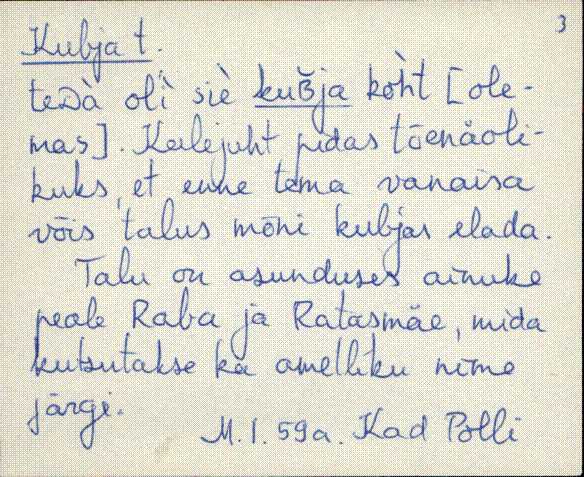 3
Kubja t.
teᴅà oli siè kuʙ̆ja kòht [ole-
mas]. Keelejuht pidas tõenäoli-
kuks, et enne tema vanaisa
võis talus mõni kubjas elada.
Talu on asunduses ainuke
peale Raba ja Ratasmäe, mida
kutsutakse ka ametliku nime
järgi.
M. I. 59a. Kad Polli